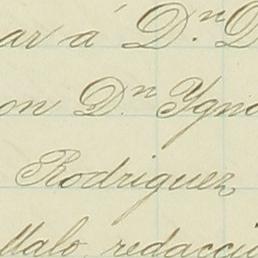 ar a D.ⁿ D
on D.ⁿ Ygn
Rodriguez
Malo, redacció